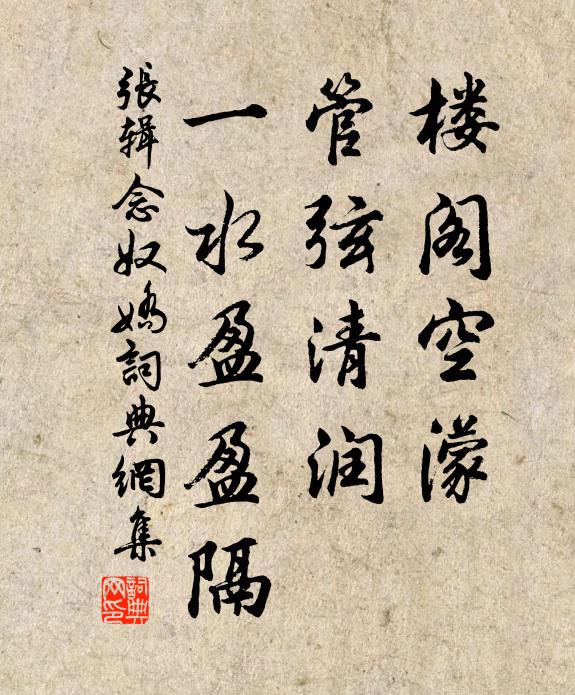 楼阁空濛
管弦清润
一水盈盈隔
張輯念奴嬌詞典網集
詞典網印